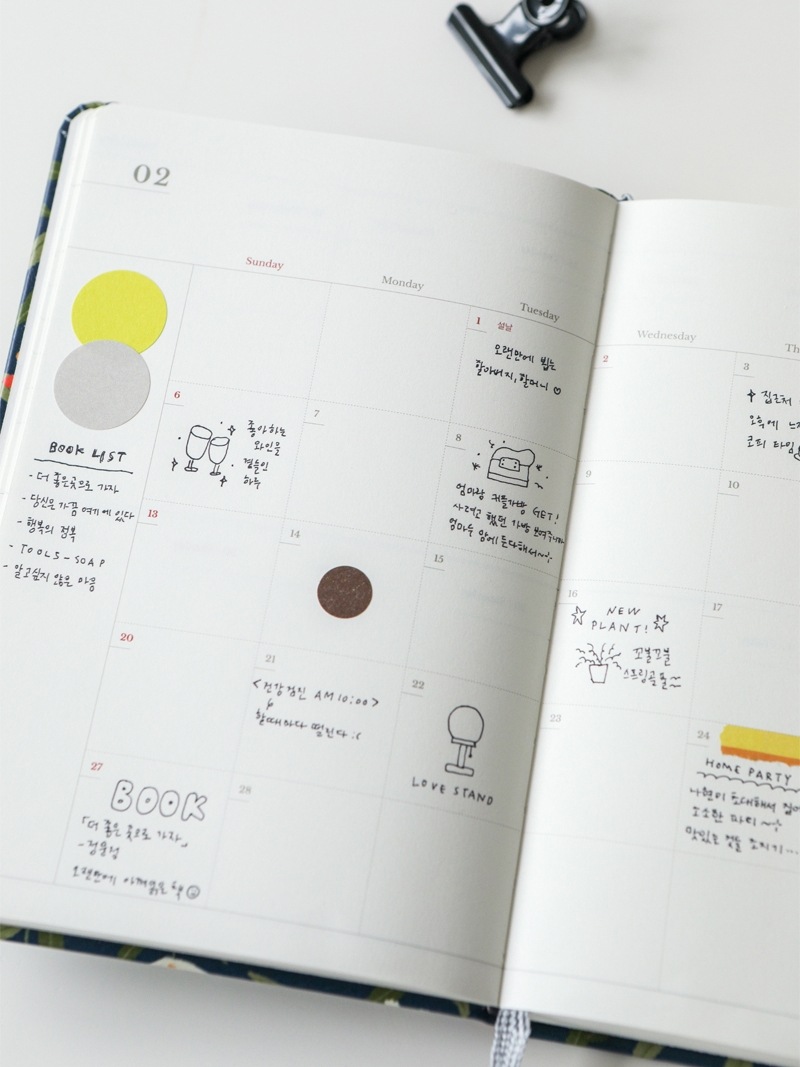 02
Sunday
Monday
Tuesday
Wednesday
Th
BOOK LIST
- 더 좋은 곳으로 가자
- 당신은 가끔 여기에 있다
- 행복의 정복
- TOOLS - SOAP
- 알고싶지 않은 마음
1 설날
오랜만에 뵙는
할아버지, 할머니 ♡
2
3
집근처
오후에
커피 타임
6
좋아하는
와인을
곁들인
하루
7
8
엄마랑 커플가방 GET!
사려고 했던 가방 보여주니까
9
10
13
14
15
16
NEW
PLANT!
꼬불꼬불
17
20
21
<건강검진 AM 10:00>
할때마다 떨린다 :(
22
LOVE STAND
23
24
HOME PARTY
나현이 초대해서
소소한 파티~
맛있는 것들
27
BOOK
「더 좋은 곳으로 가자」
오랜만에 아껴읽은 책
28